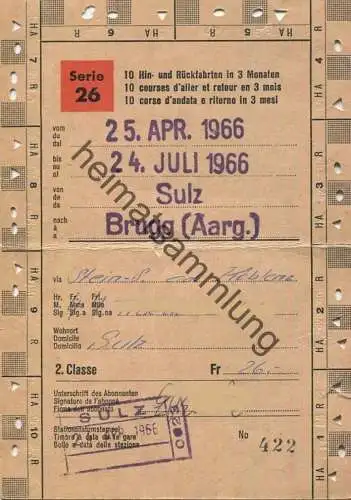 6 R
HA 5 R
7
HA
R 4
Serie
26
10 Hin- und Rückfahrten in 3 Monaten
10 courses d'aller et retour en 3 mois
10 corse d'andata e ritorno in 3 mesi
vom
du
dal
25. APR. 1966
bis
au
al
24. JULI 1966
von
de
da
Sulz
nach
à
a
Brugg (Aarg.)
HA 8 R
HA 3 R
HA 9 R
HA 2 R
HA 10 R
HA 1 R
heimatsammlung
via
Hr.
M.
Sig.
Wohnort
Domicile
Domicilio
Sulz
2. Classe
Fr 26.-
Unterschrift des Abonnenten
Signature de l'abonné
Firma dell'abbonato
SULZ
1966
Stationsdatumstempel
Timbre à date de la gare
Bollo a data della stazione
No 422